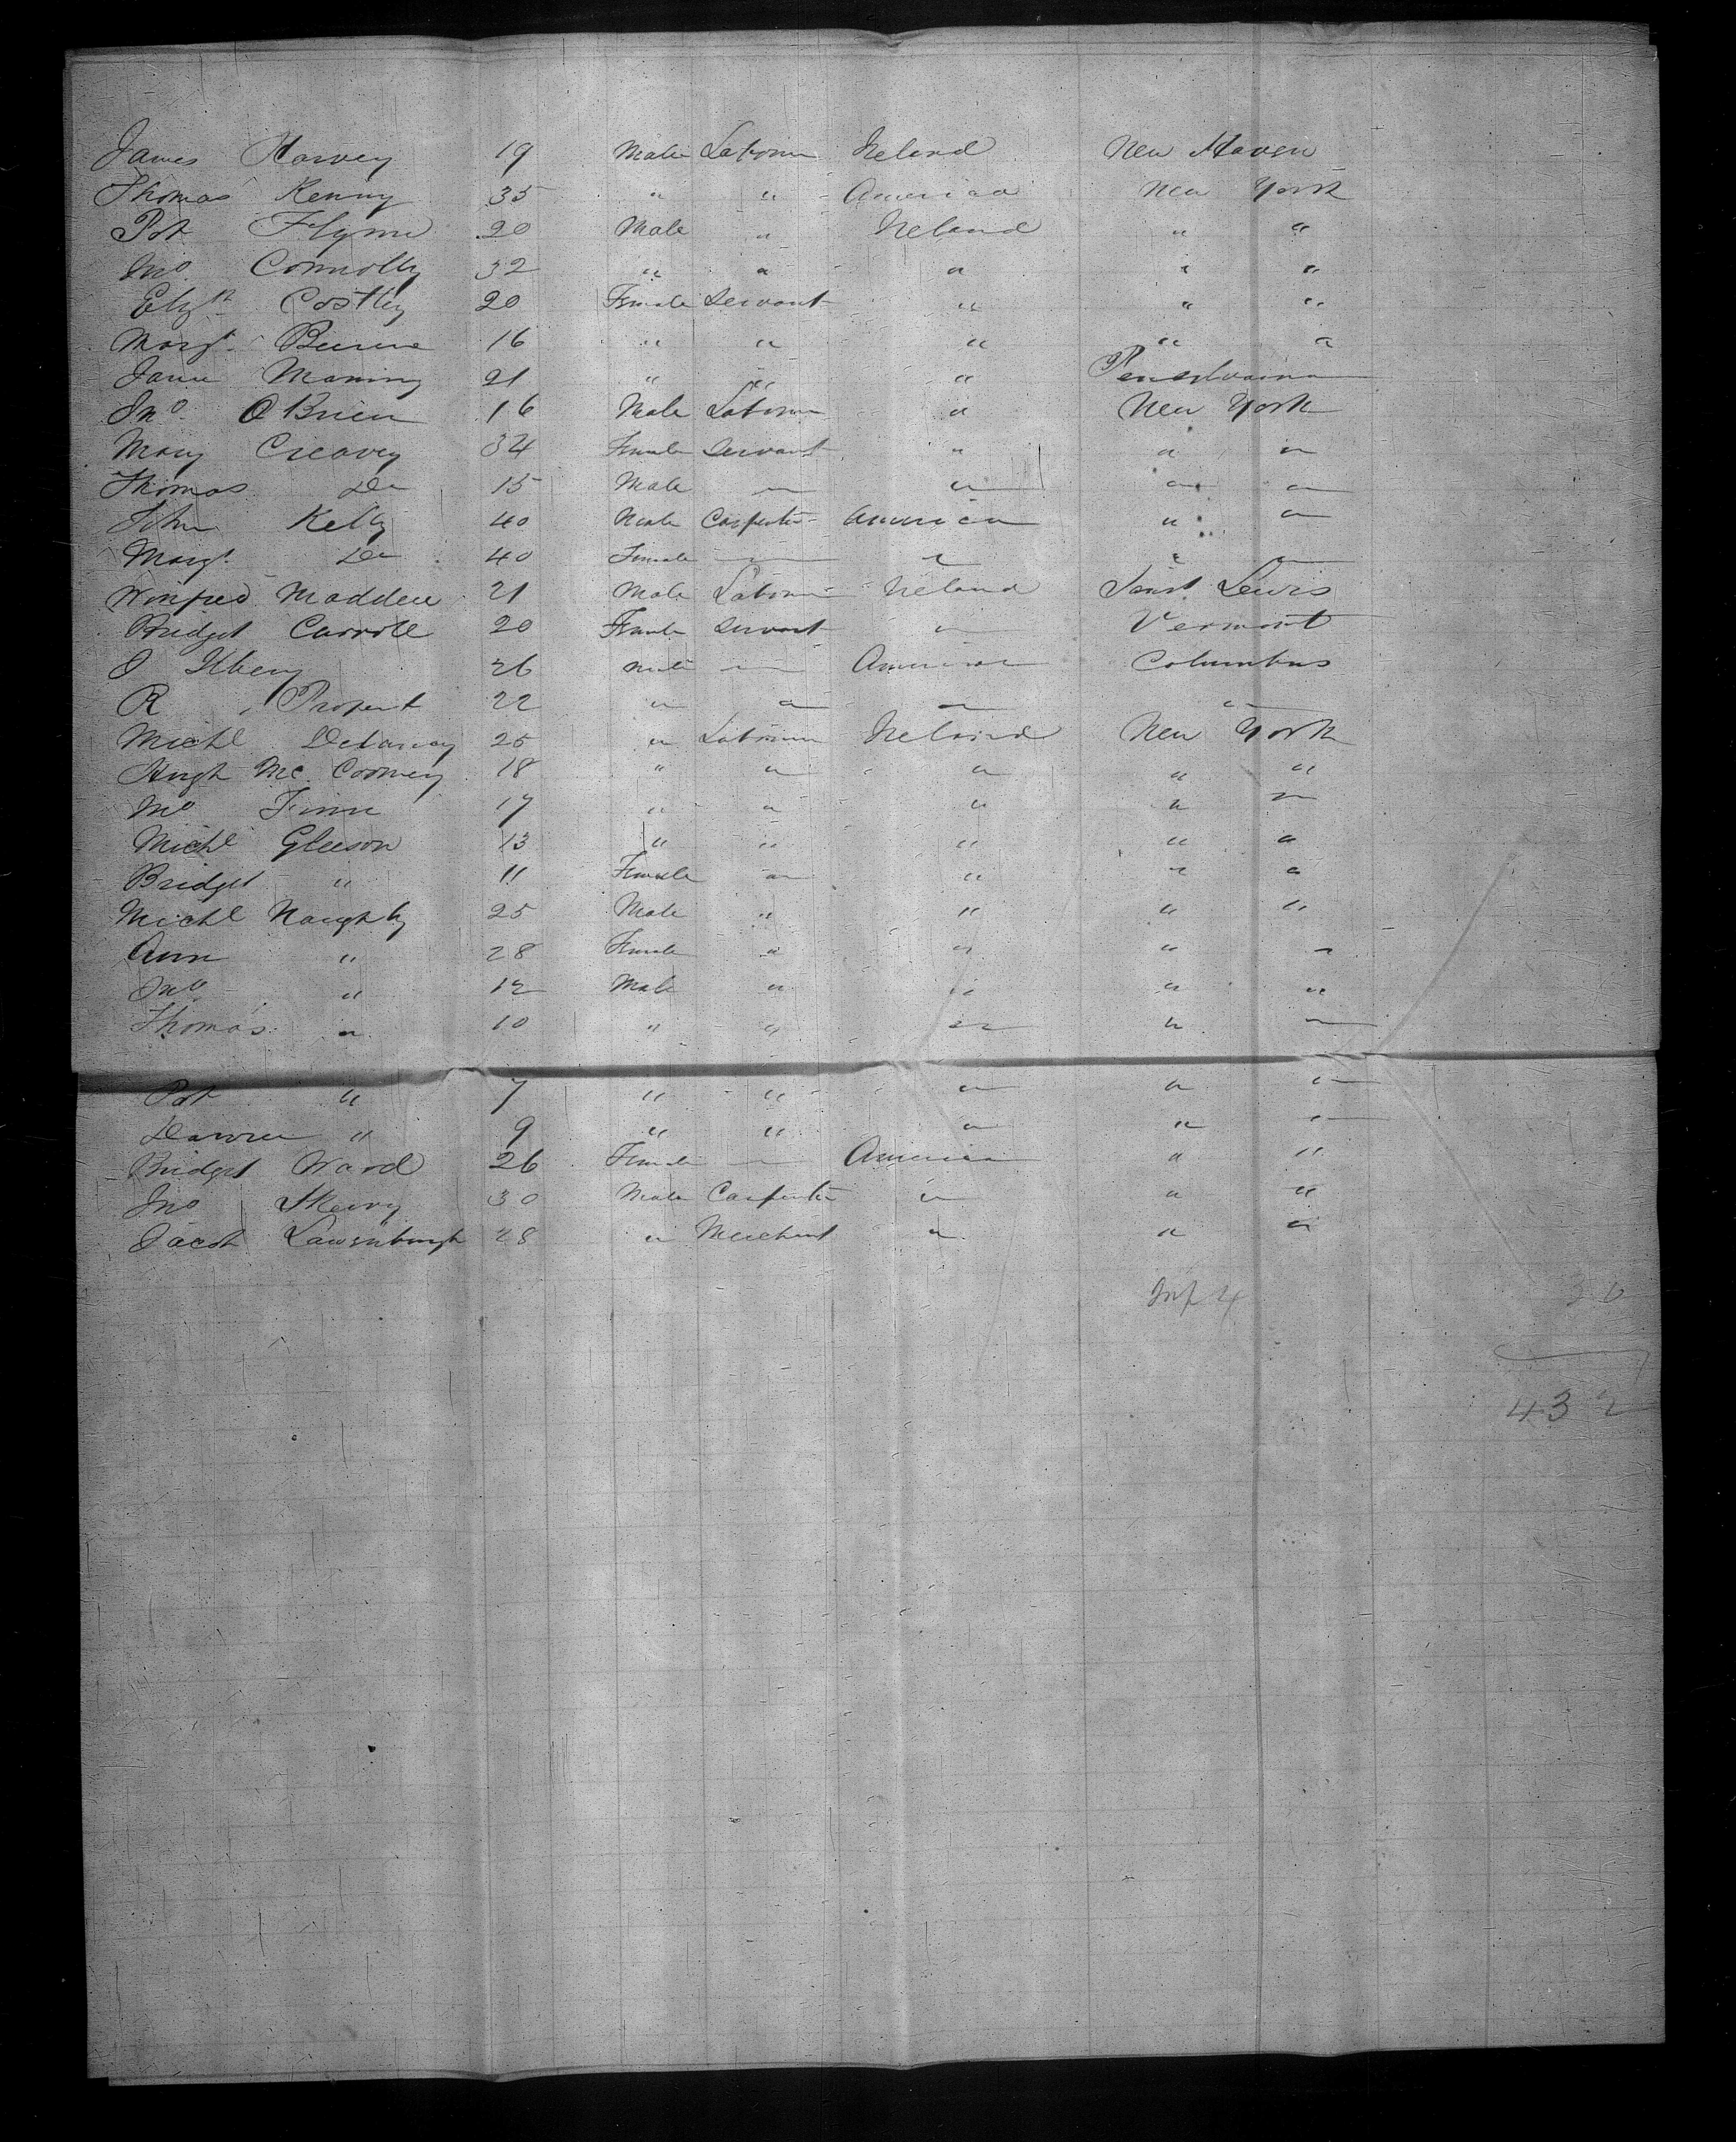 James Harvey 19 Male Laborer Ireland New Haven
Thomas Kenny 35 " " America New York
Pat Flynn 20 Male " Ireland " "
Jno Connolly 32 " " " " "
Elizth Costley 20 Female Servant " " "
Margt 16 " " " " "
Jane Maning 21 " " " Pensylvaina
Jno O Brien 16 Male Laborer " New York
Mary Creavey 34 Female Servant " " "
Thomas Do 15 Male " " " "
John Kelly 40 Male Carpenter America " "
Margt Do 40 Female " " " "
Winfred Madden 21 Male Laborer Ireland Saint Lewis
Bridget Carroll 20 Female Servant " Vermont
26 Male " America Columbus
R Propert 22 " " " "
Michl Delaney 25 " Laborer Ireland New York
Hugh Mc 18 " " " " "
Jno Finn 17 " " " " "
Michl Gleeson 13 " " " " "
Bridget " 11 Female " " " "
Michl Naughty 25 Male " " " "
Ann " 28 Female " " " "
Jno " 12 Male " " " "
Thomas " 10 " " " " "
Pat " 7 " " " " "
" 9 " " " " "
Bridget Ward 26 Female " America " "
Jno Skerry 30 Male Carpenter " " "
Jacob 28 " Merchant " " "
Inf 4 30
432